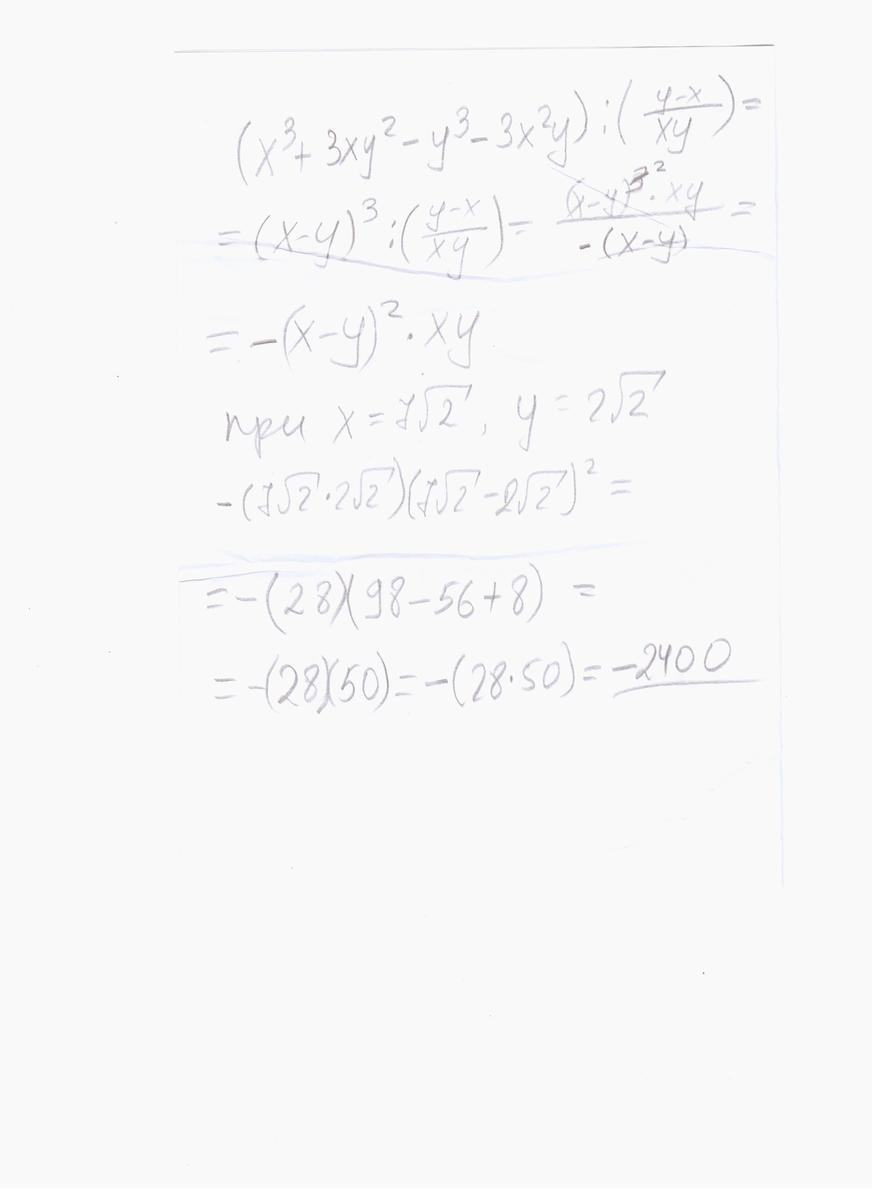 (x³ + 3xy² - y³ - 3x²y) : ((y-x)/(xy)) =
= (x-y)³ : ((y-x)/(xy)) = ((x-y)³ ² · xy)/(-(x-y)) =
= -(x-y)² · xy
при x = 7√2, y = 2√2
-(7√2 · 2√2)(7√2 - 2√2)² =
= -(28)(98 - 56 + 8) =
= -(28)(50) = -(28·50) = -2400